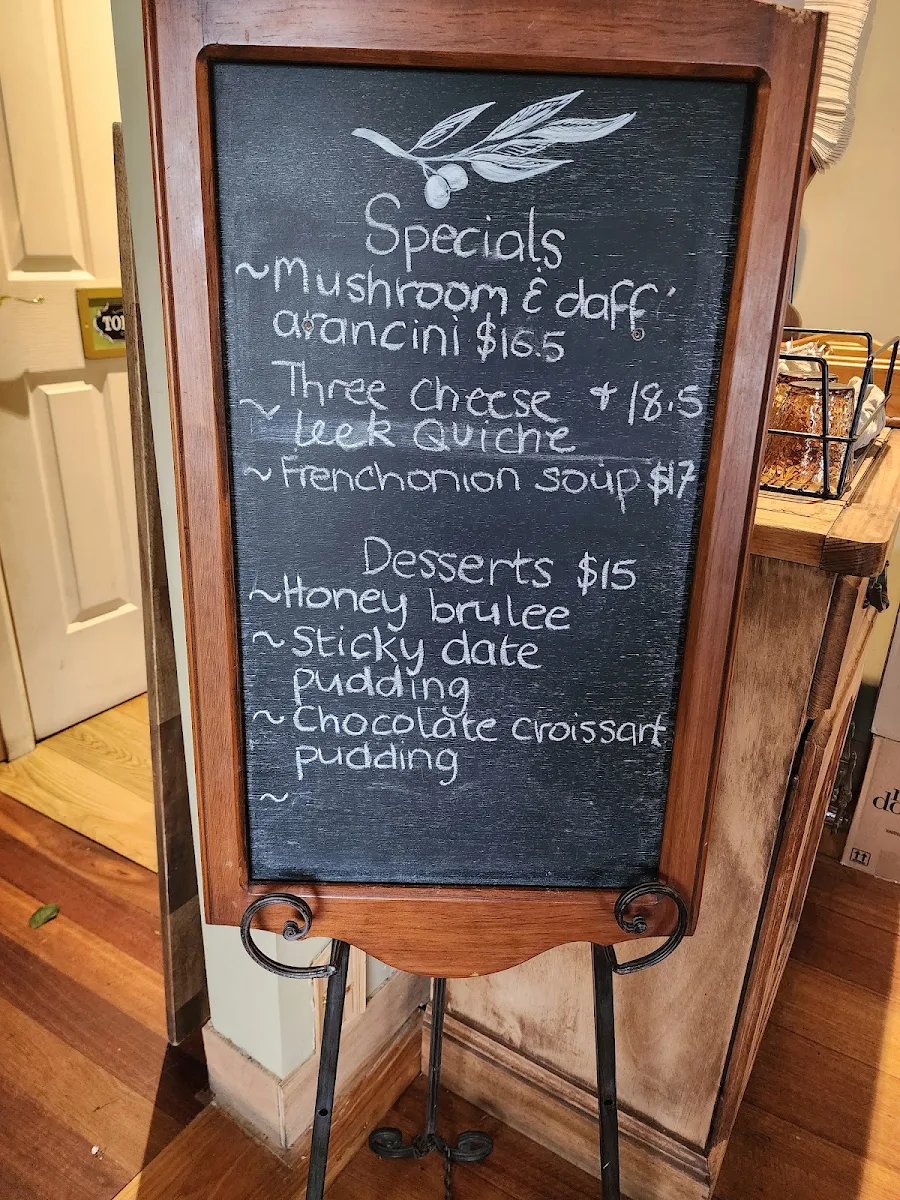 Specials
~Mushroom & daff'
arancini $16.5
Three cheese + 18.5
~ leek Quiche
~Frenchonion soup $17
Desserts $15
~Honey brulee
~Sticky date
pudding
~Chocolate croissant
pudding
~